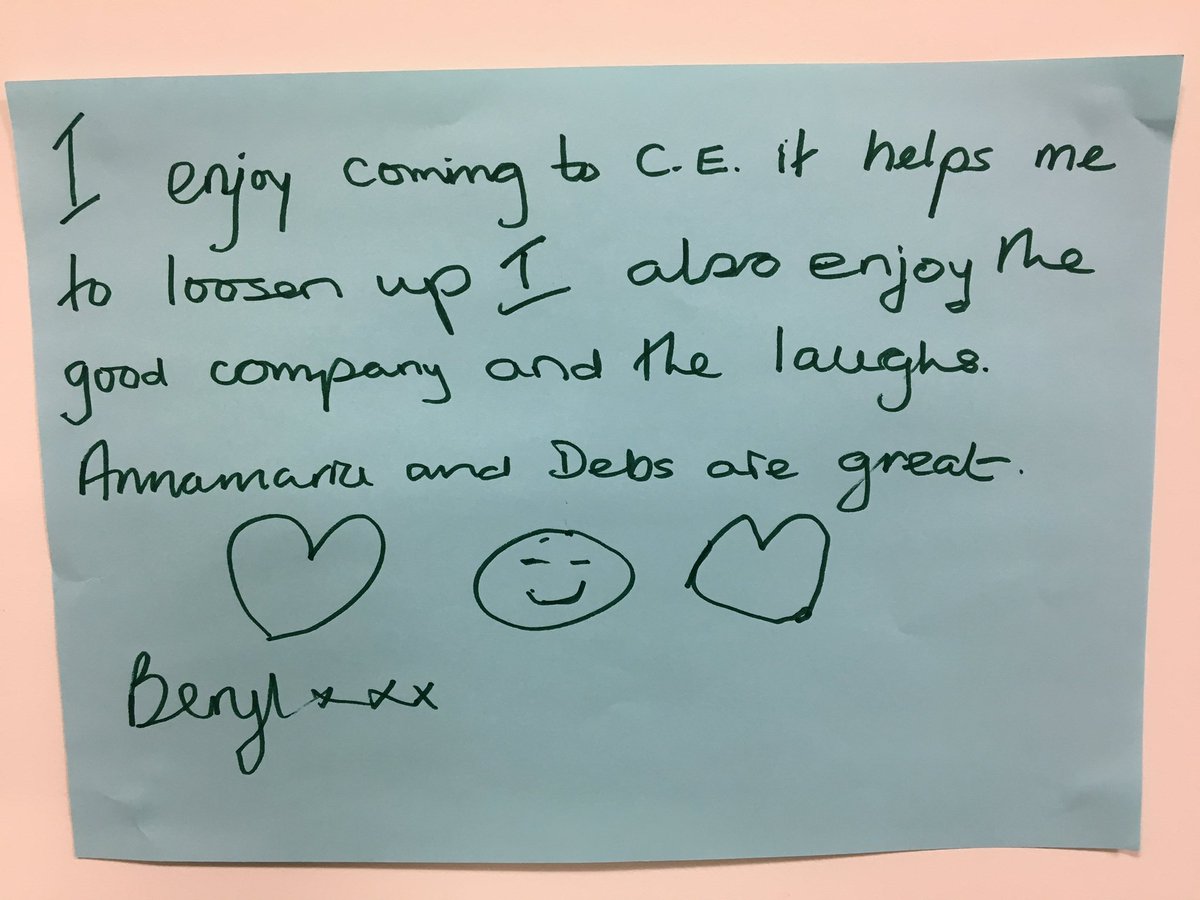 I enjoy coming to C.E. it helps me
to loosen up I also enjoy the
good company and the laughs.
Annamaria and Debs are great.
Beryl xxx